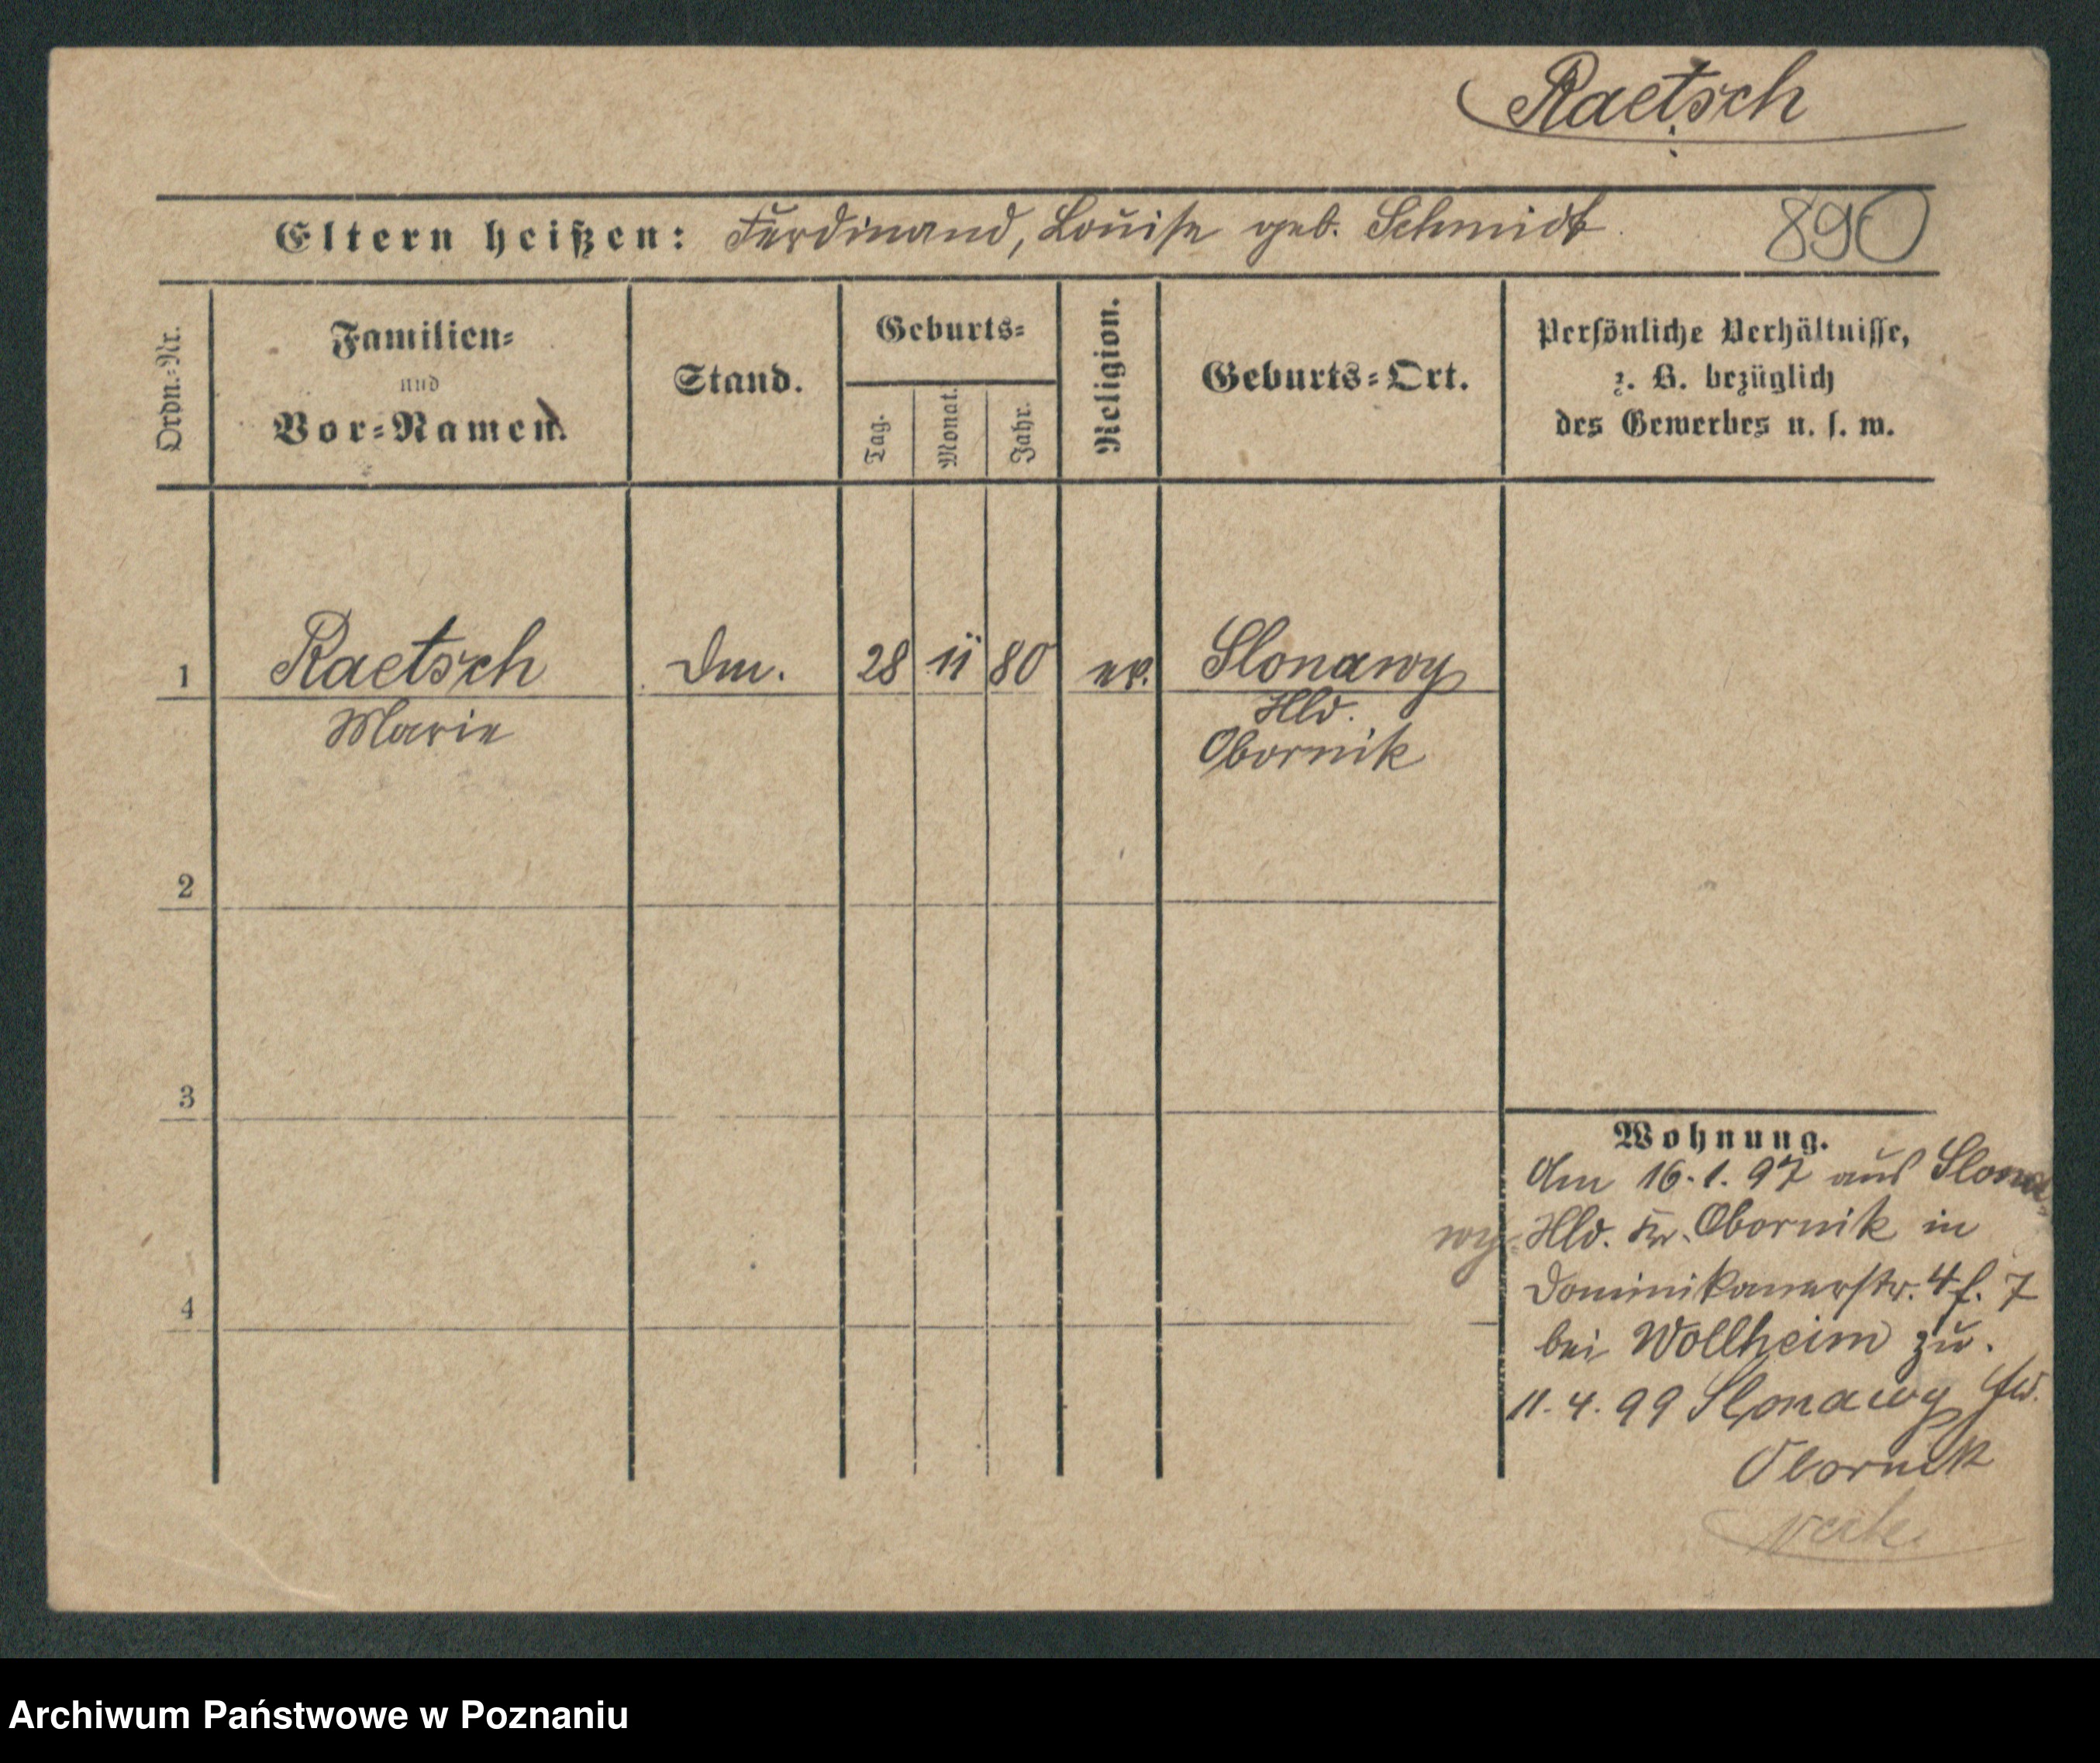 Raetsch
Eltern heißen: Ferdinand, Louise geb. Schmidt. 890
Ordn.-Nr.
Familien-
und
Vor-Namen.
Stand.
Geburts-
Tag.
Monat.
Jahr.
Religion.
Geburts-Ort.
Persönliche Verhältnisse,
z. B. bezüglich
des Gewerbes u. s. w.
1 Raetsch Dm. 28 11 80 ev. Slonawy
Marie Hld.
Obornik
2
3
4
Wohnung.
Am 16.1.97 aus Slona-
wy Hld. Kr. Obornik in
Dominikanerstr. 4 f. 7
bei Wollheim zu.
11.4.99 Slonawy
Obornik
Archiwum Państwowe w Poznaniu